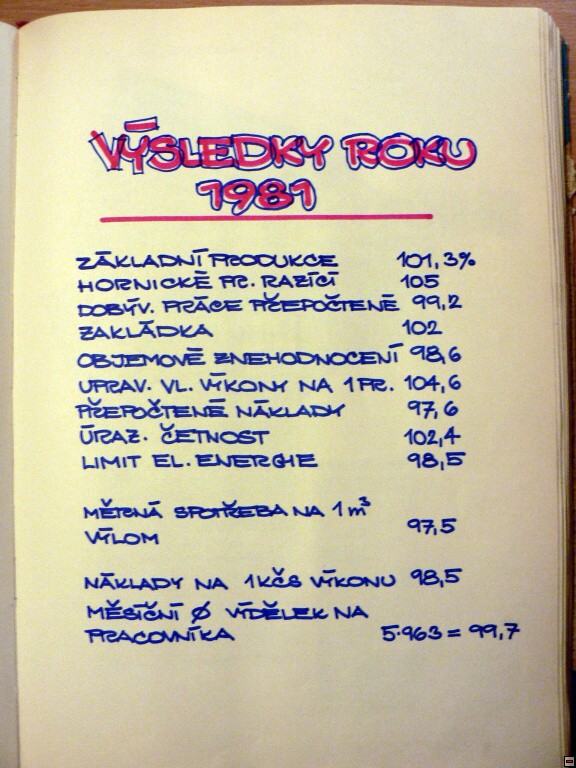 VÝSLEDKY ROKU
1981
ZÁKLADNÍ PRODUKCE 101,3%
HORNICKÉ PR. RAZÍCÍ 105
DOBÝV. PRÁCE PŘEPOČTENÉ 99,2
ZAKLÁDKA 102
OBJEMOVÉ ZNEHODNOCENÍ 98,6
UPRAV. VL. VÝKONY NA 1 PR. 104,6
PŘEPOČTENÉ NÁKLADY 97,6
ÚRAZ. ČETNOST 102,4
LIMIT EL. ENERGIE 98,5
MĚRNÁ SPOTŘEBA NA 1 m³
VÝLOM 97,5
NÁKLADY NA 1 KČS VÝKONU 98,5
MĚSÍČNÍ Ø VÝDĚLEK NA
PRACOVNÍKA 5.963 = 99,7